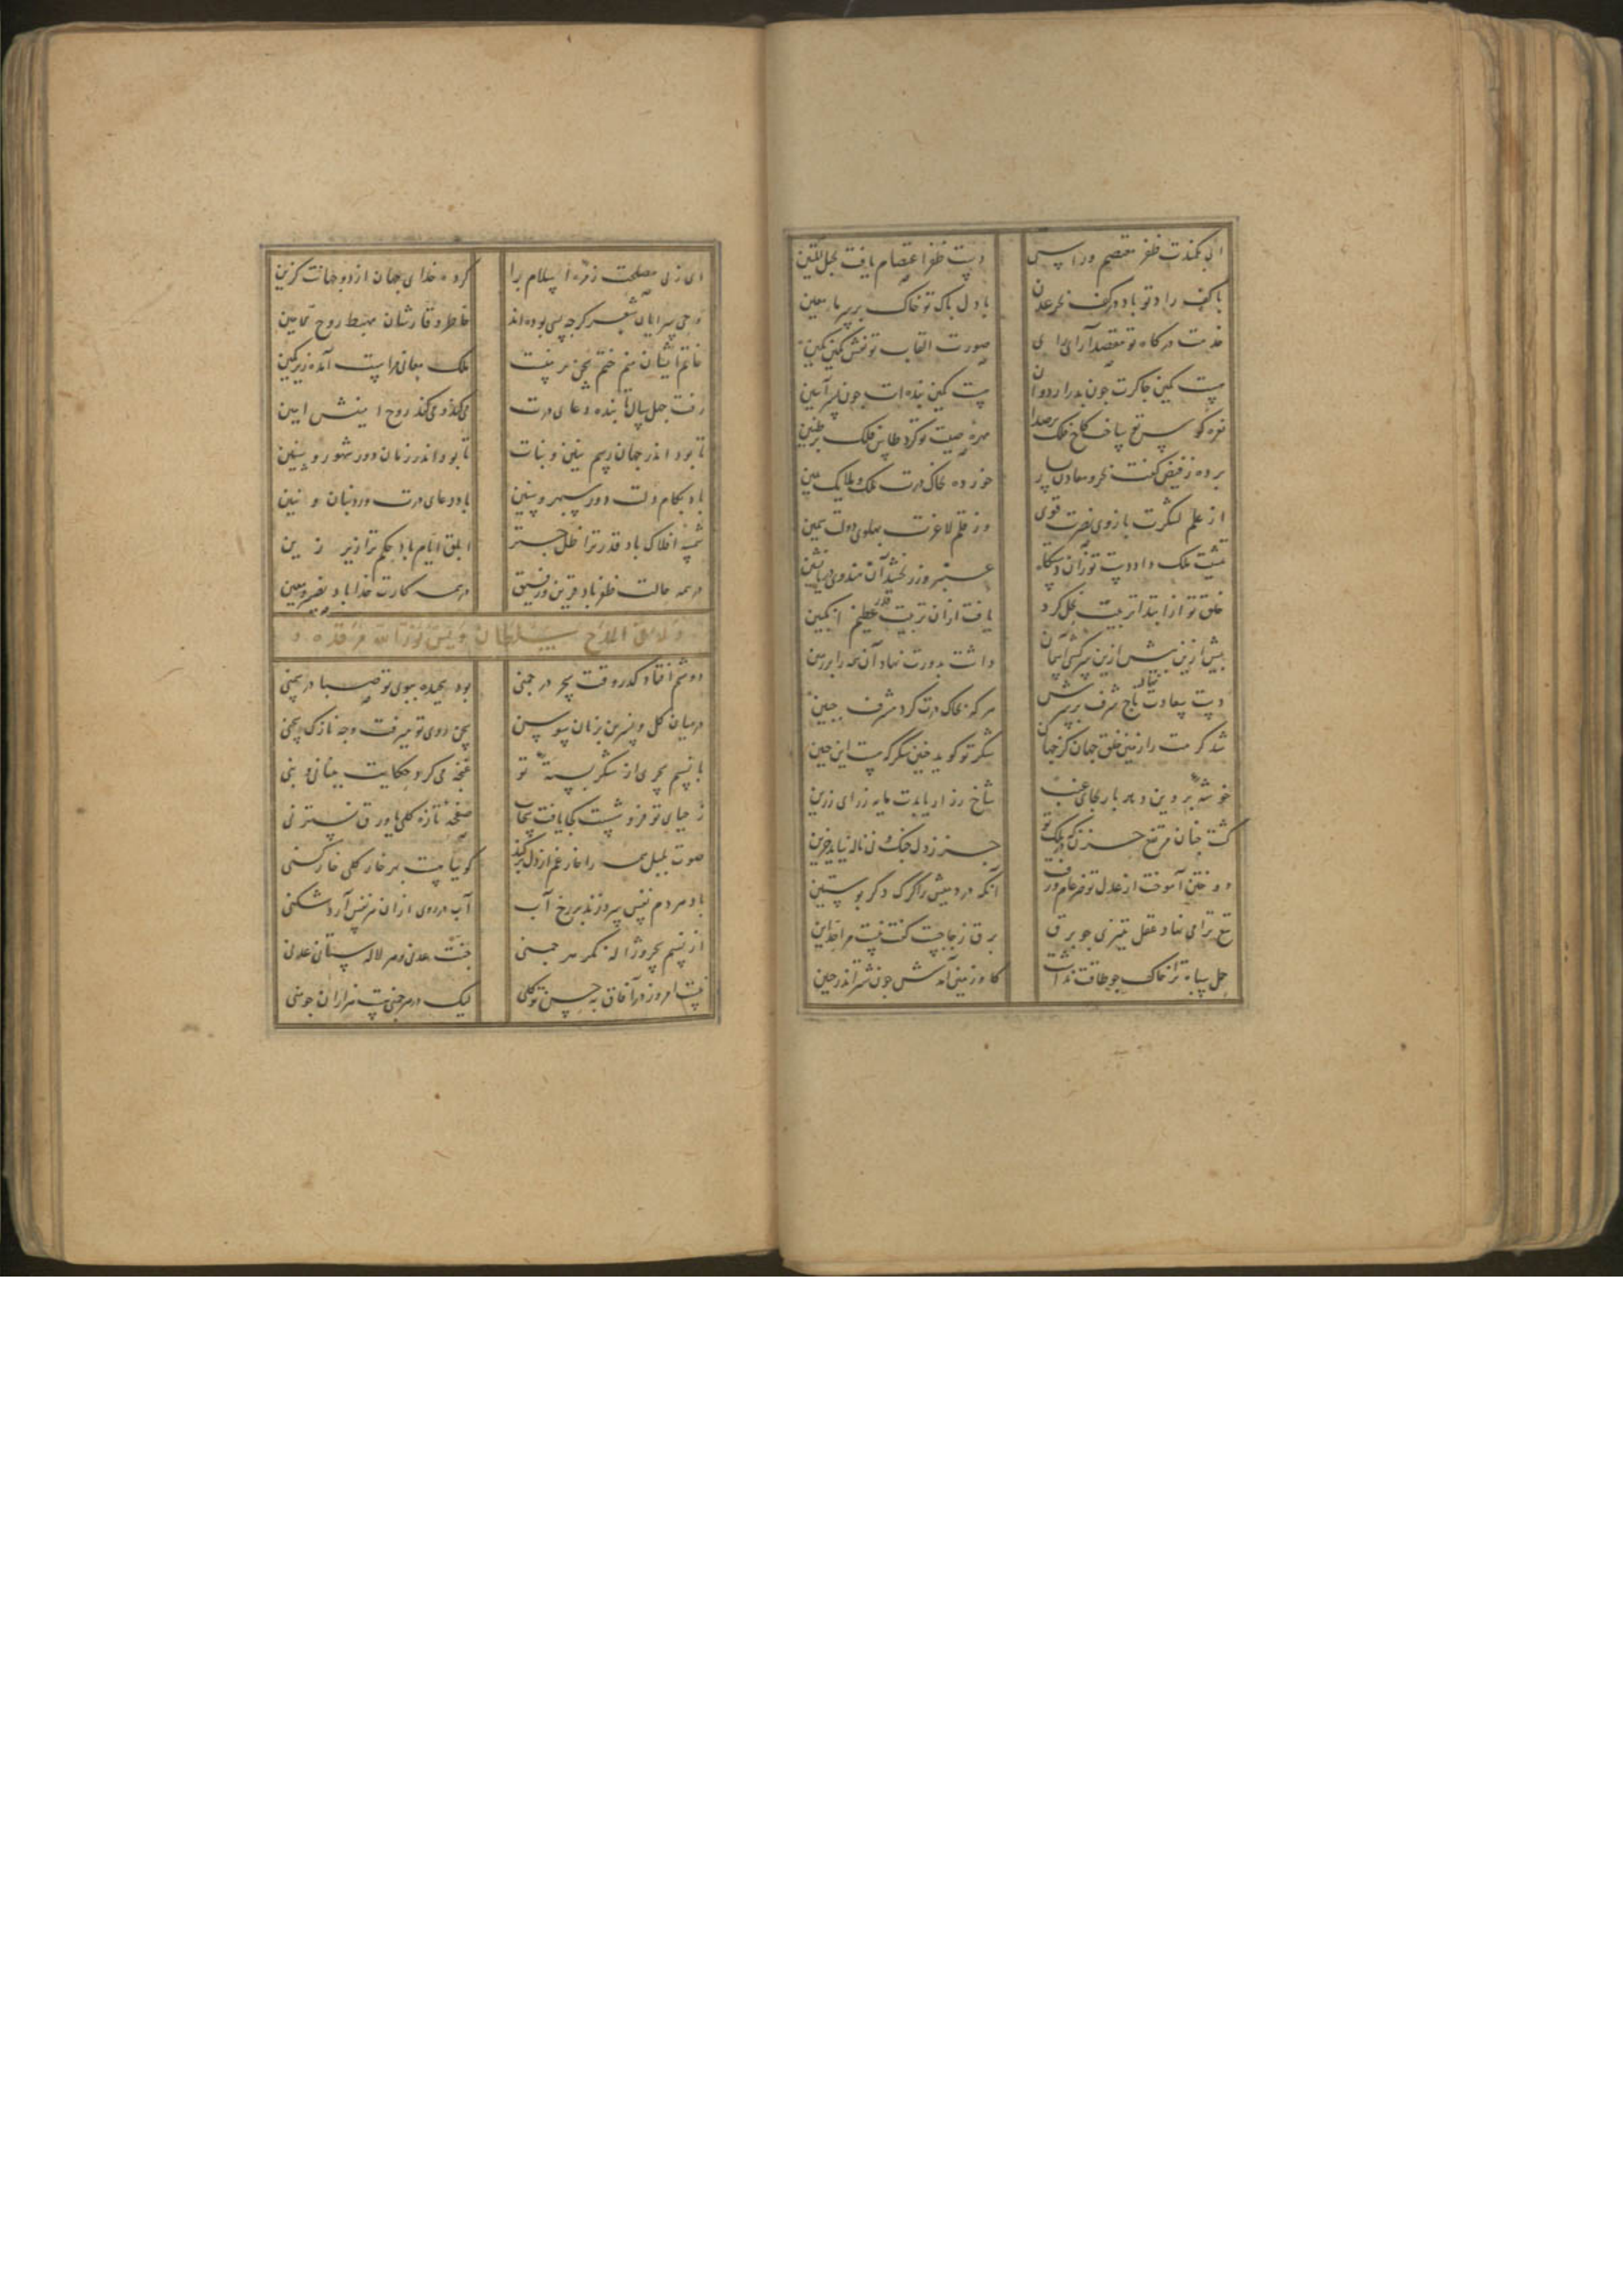 ای بکمندت ظفر معتصم و از پس دست ظفر اعتصام یافت بحبل متین
با کف راد تو باد در کف بحر عدن با دل پاک تو خاک بر سر ماء معین
خدمت درگاه تو مقصد آرای صورت القاب تو نقش نگین
هست کمین چاکرت چون بدر اردوان هست کمین بنده‌ات چون پسر آبتین
نعره کوس تو ساخت کاخ فلک پر صدا مهره صیت تو کرد طاس فلک پر طنین
برده ز فیض کفت بحر و معادن خورده بخاک درت ملک و ملایک یمین
از علم لشکرت بازوی نصرت قوی وز قلم لاغرت پهلوی دولت سمین
ملک داد دست تو زان عنبر و زر بخشد آن هندوی دریا نشین
خلق تو از ابتدا تربیت نحل کرد یافت از آن تربیت قدر عظیم انگبین
پیش ازین بیش ازین سرکشی آسمان داشت بدورت نهاد آن همه را بر زمین
دست سعادت نهد تاج شرف بر سرش هر که بخاک درت کرد مشرف جبین
شد کرمت را زمین خلق جهان کز جهان شکر تو گوید جنین شکر گرمست این جنین
خوشه پروین دهد بار بجای عنب شاخ رز ار یابدت مایه ز رای رزین
گشت چنان مرتفع حزن که در ملک تو جز ز دل چنگ و نی ناله نیاید حزین
دوختن آموخت از عدل تو در عالم آنکه دریدیش را گرگ دگر پوستین
تیغ ترا می نهاد عقل بتیزی چو برق برق ز جا جست گفت نیست مرا حد این
حمل سپاه ترا خاک چو طاقت نداشت گاو زمین آمدش چون شتر اندر حنین
ای ز پی مصلحت زمره اسلام را کرده خدای جهان از دو جهانت گزین
وحی سرایان شعر گرچه بسی بوده‌اند خاطر وقارشان مهبط روح الامین
خاتم ایشان منم ختم سخن بر منست ملک معانی مراست آمده زیر نگین
رفت چهل سال تا بنده دعای درت میکند و میکند روح امینش آمین
تا بود اندر جهان رسم بنین و بنات تا بود اندر زمان دور شهور و سنین
باد بکام دلت دور سپهر و سنین باد دعای درت ورد بنات و بنین
شمسه افلاک باد قدر ترا ظل چتر ابلق ایام باد حکم ترا زیر زین
در همه حالت ظفر باد قرین و رفیق در همه کارت خدا باد نصیر و معین
وله ایضا فی المدح سلطان اویس نور الله مرقده
دوشم افتاد گذر وقت سحر در چمنی بود پیچیده ببوی تو صبا در سمنی
در میان گل و نسرین بزبان سوسن سخن روی تو میرفت وجه نازک سخنی
با نسیم سحری از شکر پسته تو غنچه می کرد حکایت بدهانی و بنی
ز حیای تو فرو شست کجا یافت سحاب صفحه تازه گلی یا ورق نسترنی
صوت بلبل همه را خار غم از دل برکند گوییا هست بهر خار گلی خارکنی
باد هر دم نفسی پیر و زند بر رخ آب آب در روی از آن هر نفس آرد شکنی
از نسیم سحر و ژاله نگر هر چمنی جنت عدنی و هر لاله ستان عدنی
نیست امروز در آفاق به حسن تو گلی لیک در هر چمنی هست هزاران چو منی